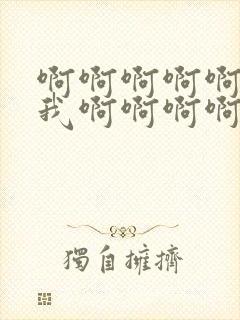 啊啊啊啊啊
我啊啊啊啊
獨自擁擠